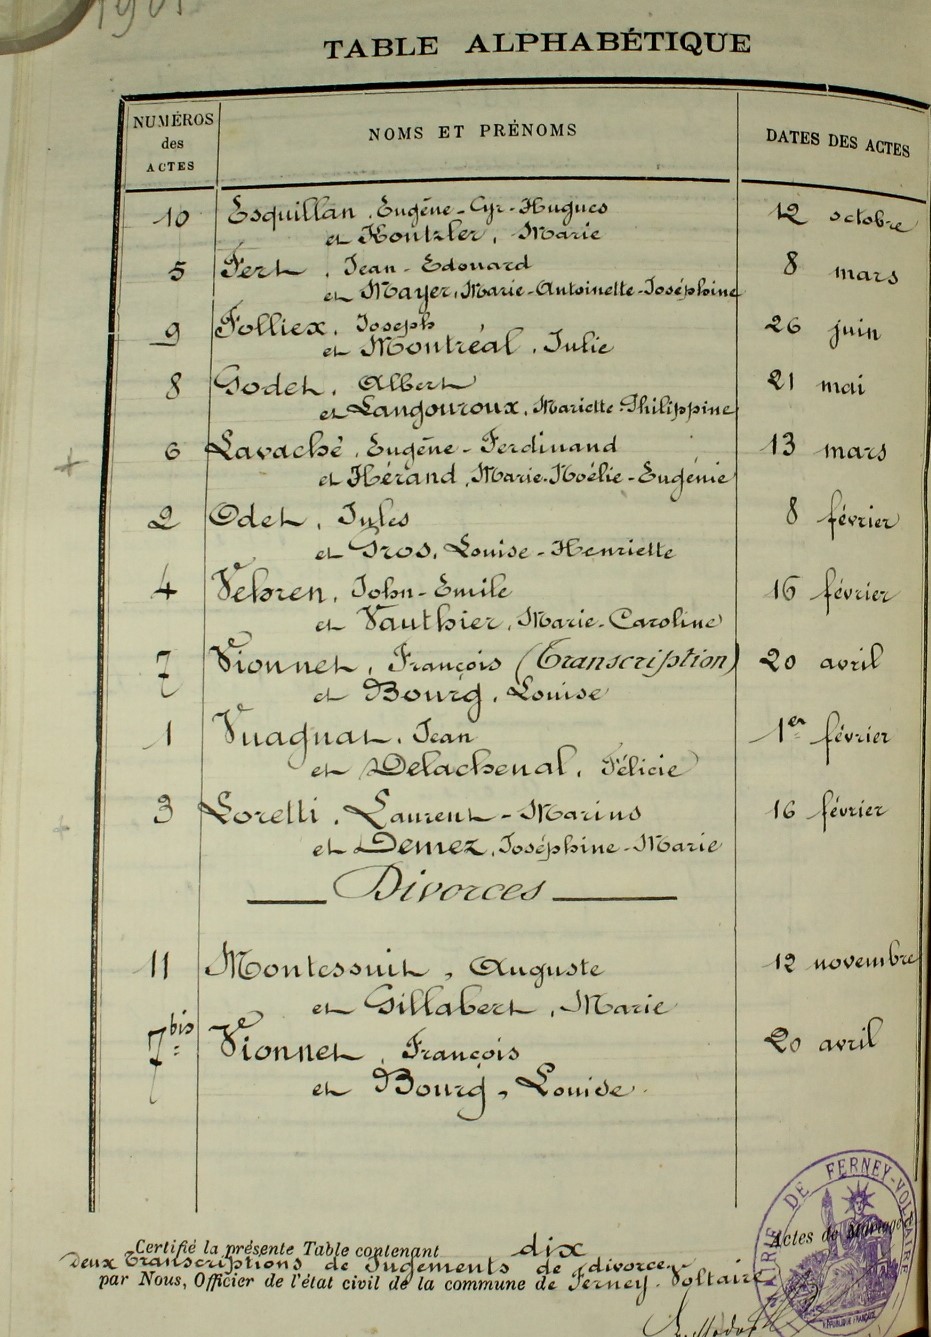 1901
TABLE ALPHABÉTIQUE
NUMÉROS des ACTES
NOMS ET PRÉNOMS
DATES DES ACTES
10 Esquillan, Eugène-Cyr-Hugues 12 octobre
et Kontzler, Marie
5 Fert, Jean-Edouard 8 mars
et Mayer, Marie-Antoinette-Joséphine
9 Folliex, Joseph 26 juin
et Montréal, Julie
8 Godet, Albert 21 mai
et Langouroux, Mariette-Philippine
+ 6 Lavaché, Eugène-Ferdinand 13 mars
et Hérand, Marie-Noélie-Eugénie
2 Odet, Jules 8 février
et Gros, Louise-Henriette
4 Vehren, John-Emile 16 février
et Vauthier, Marie-Caroline
7 Vionnet, François (Transcription) 20 avril
et Bourg, Louise
1 Vuagnat, Jean 1er février
et Delachenal, Félicie
+ 3 Loretti, Laurent-Marius 16 février
et Demez, Joséphine-Marie
Divorces
11 Montessuit, Auguste 12 novembre
et Gillabert, Marie
7bis Vionnet, François 20 avril
et Bourg, Louise
Certifié la présente Table contenant dix Actes de Mariage &
deux transcriptions de Jugements de divorce,
par Nous, Officier de l'état civil de la commune de Ferney-Voltaire
MAIRIE DE FERNEY-VOLTAIRE
RÉPUBLIQUE FRANÇAISE